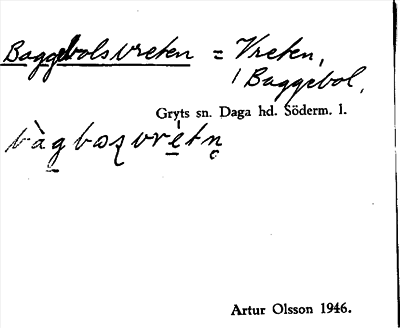 Baggebolsvreten = Vreten,
1 Baggebol.
Gryts sn. Daga hd. Söderm. l.
bàgboʂvrétn̥
Artur Olsson 1946.